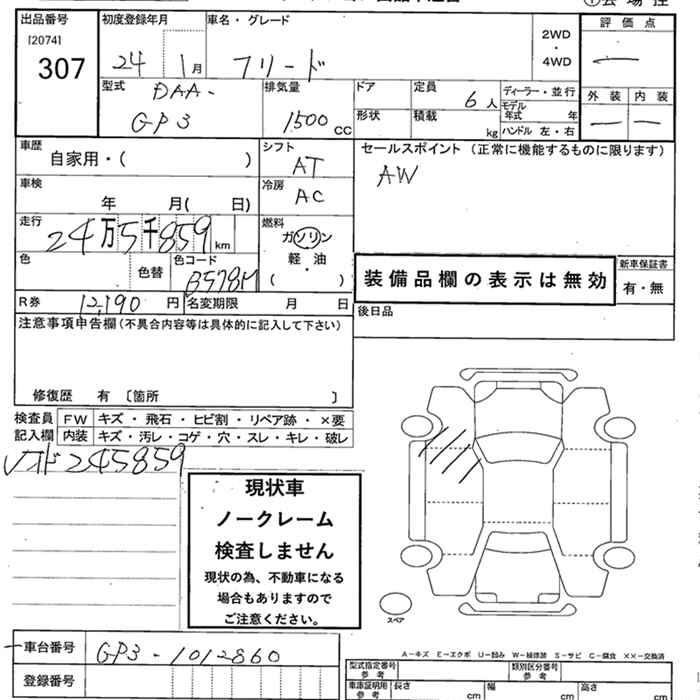 出品番号 初度登録年月 車名・グレード 2WD・4WD 評価点
[2074]
307 24 1月 フリード
型式 排気量 ドア 定員 ディーラー・並行 外装 内装
DAA- 6人 モデル年式 年
GP3 1500cc 形状 積載 kg ハンドル 左・右
車歴 自家用・( ) シフト AT セールスポイント(正常に機能するものに限ります)
車検 年 月( 日) 冷房 AC AW
走行 24万5千859km 燃料 ガソリン
軽・油
( )
色 色替 色コード B578M 装備品欄の表示は無効 新車保証書 有・無
R券 12,190円 名変期限 月 日 後日品
注意事項申告欄(不具合内容等は具体的に記入して下さい)
修復歴 有 〔箇所 〕
検査員 FW キズ・飛石・ヒビ割・リペア跡・×要
記入欄 内装 キズ・汚レ・コゲ・穴・スレ・キレ・破レ
245859
現状車
ノークレーム
検査しません
現状の為、不動車になる
場合もありますので
ご注意ください。
スペア
A-キズ E-エクボ U-凹み W-補修跡 S-サビ C-腐食 ××-交換済
車台番号 GP3-1012860
型式指定番号 参考 類別区分番号 参考
登録番号 車庫証明用 参考 長さ cm 幅 cm 高さ cm